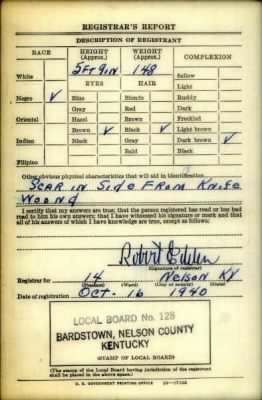 REGISTRAR'S REPORT
DESCRIPTION OF REGISTRANT
RACE HEIGHT (Approx.) WEIGHT (Approx.) COMPLEXION
5 FT 9 IN 148
White Sallow
EYES HAIR Light
Negro ✓ Blue Blonde Ruddy
Gray Red Dark
Oriental Hazel Brown Freckled
Brown ✓ Black ✓ Light brown
Indian Black Gray Dark brown ✓
Bald Black
Filipino
Other obvious physical characteristics that will aid in identification
SCAR IN SIDE FROM KNIFE
WOUND
I certify that my answers are true; that the person registered has read or has had read to him his own answers; that I have witnessed his signature or mark and that all of his answers of which I have knowledge are true, except as follows:
Robert
(Signature of registrar)
Registrar for 14 Nelson KY
(Precinct) (Ward) (City or county) (State)
Date of registration Oct. 16 1940
LOCAL BOARD No. 128
BARDSTOWN, NELSON COUNTY
KENTUCKY
(STAMP OF LOCAL BOARD)
(The stamp of the Local Board having jurisdiction of the registrant
shall be placed in the above space.)
U. S. GOVERNMENT PRINTING OFFICE